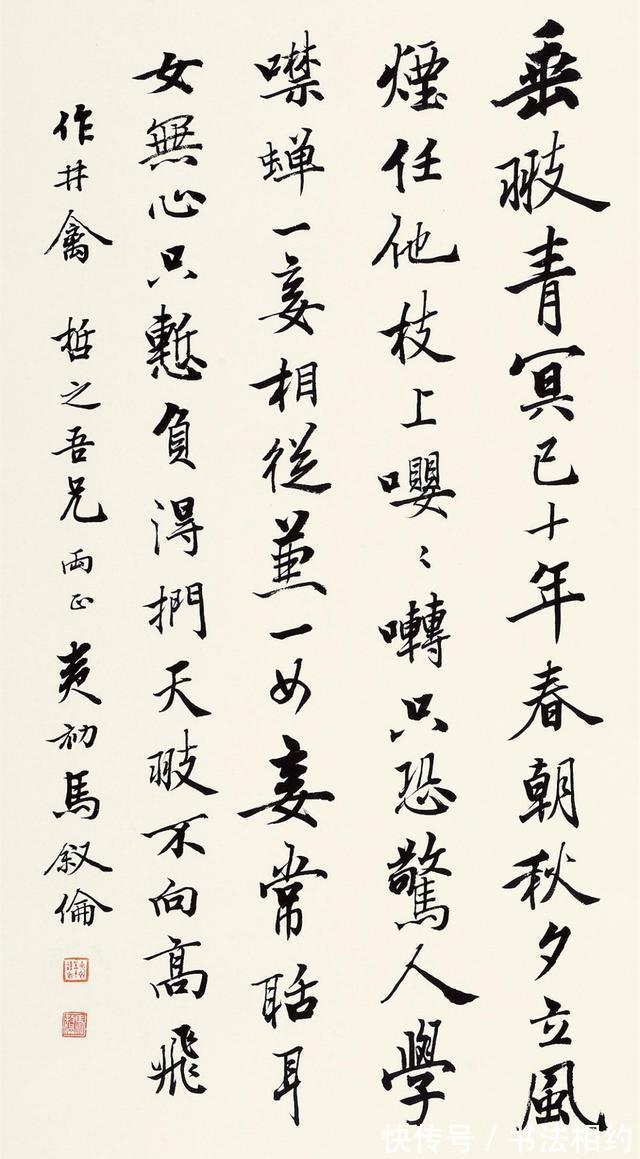 垂翄青冥已十年春朝秋夕立風
煙任他枝上嚶〻囀只恐驚人學
噤蝉一妾相從兼一女妾常聒耳
女無心只慙負淂捫天翄不向高飛
作井禽 哲之吾兄 兩正 夷初馬叙倫
快传号 / 书法相约